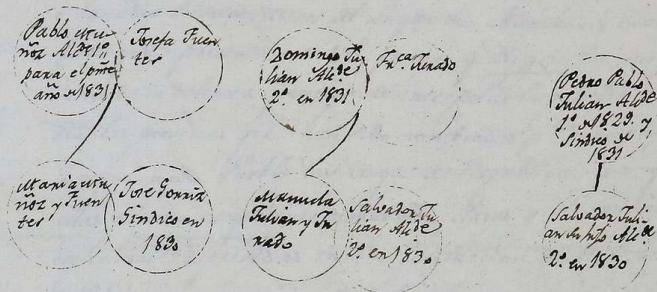 Pablo Mu-
ñoz Alde 1º
para el pñte
año de 1831
Josefa Fuen-
tes
Domingo Ju-
lian Alde
2º. en 1831
Frca. Junado
Pedro Pablo
Julian Alde
1º. de 1829. y
Sindico de
1831
Maria Mu-
ñoz y Fuen-
tes
Jose Gorriz
Sindico en
1830
Manuela
Julian y Ju-
nado
Salvador Ju-
lian Alde
2º. en 1830
Salvador Juli-
an su hijo Alde
2º. en 1830